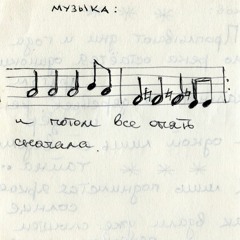 музыка:
и потом все опять
сначала.